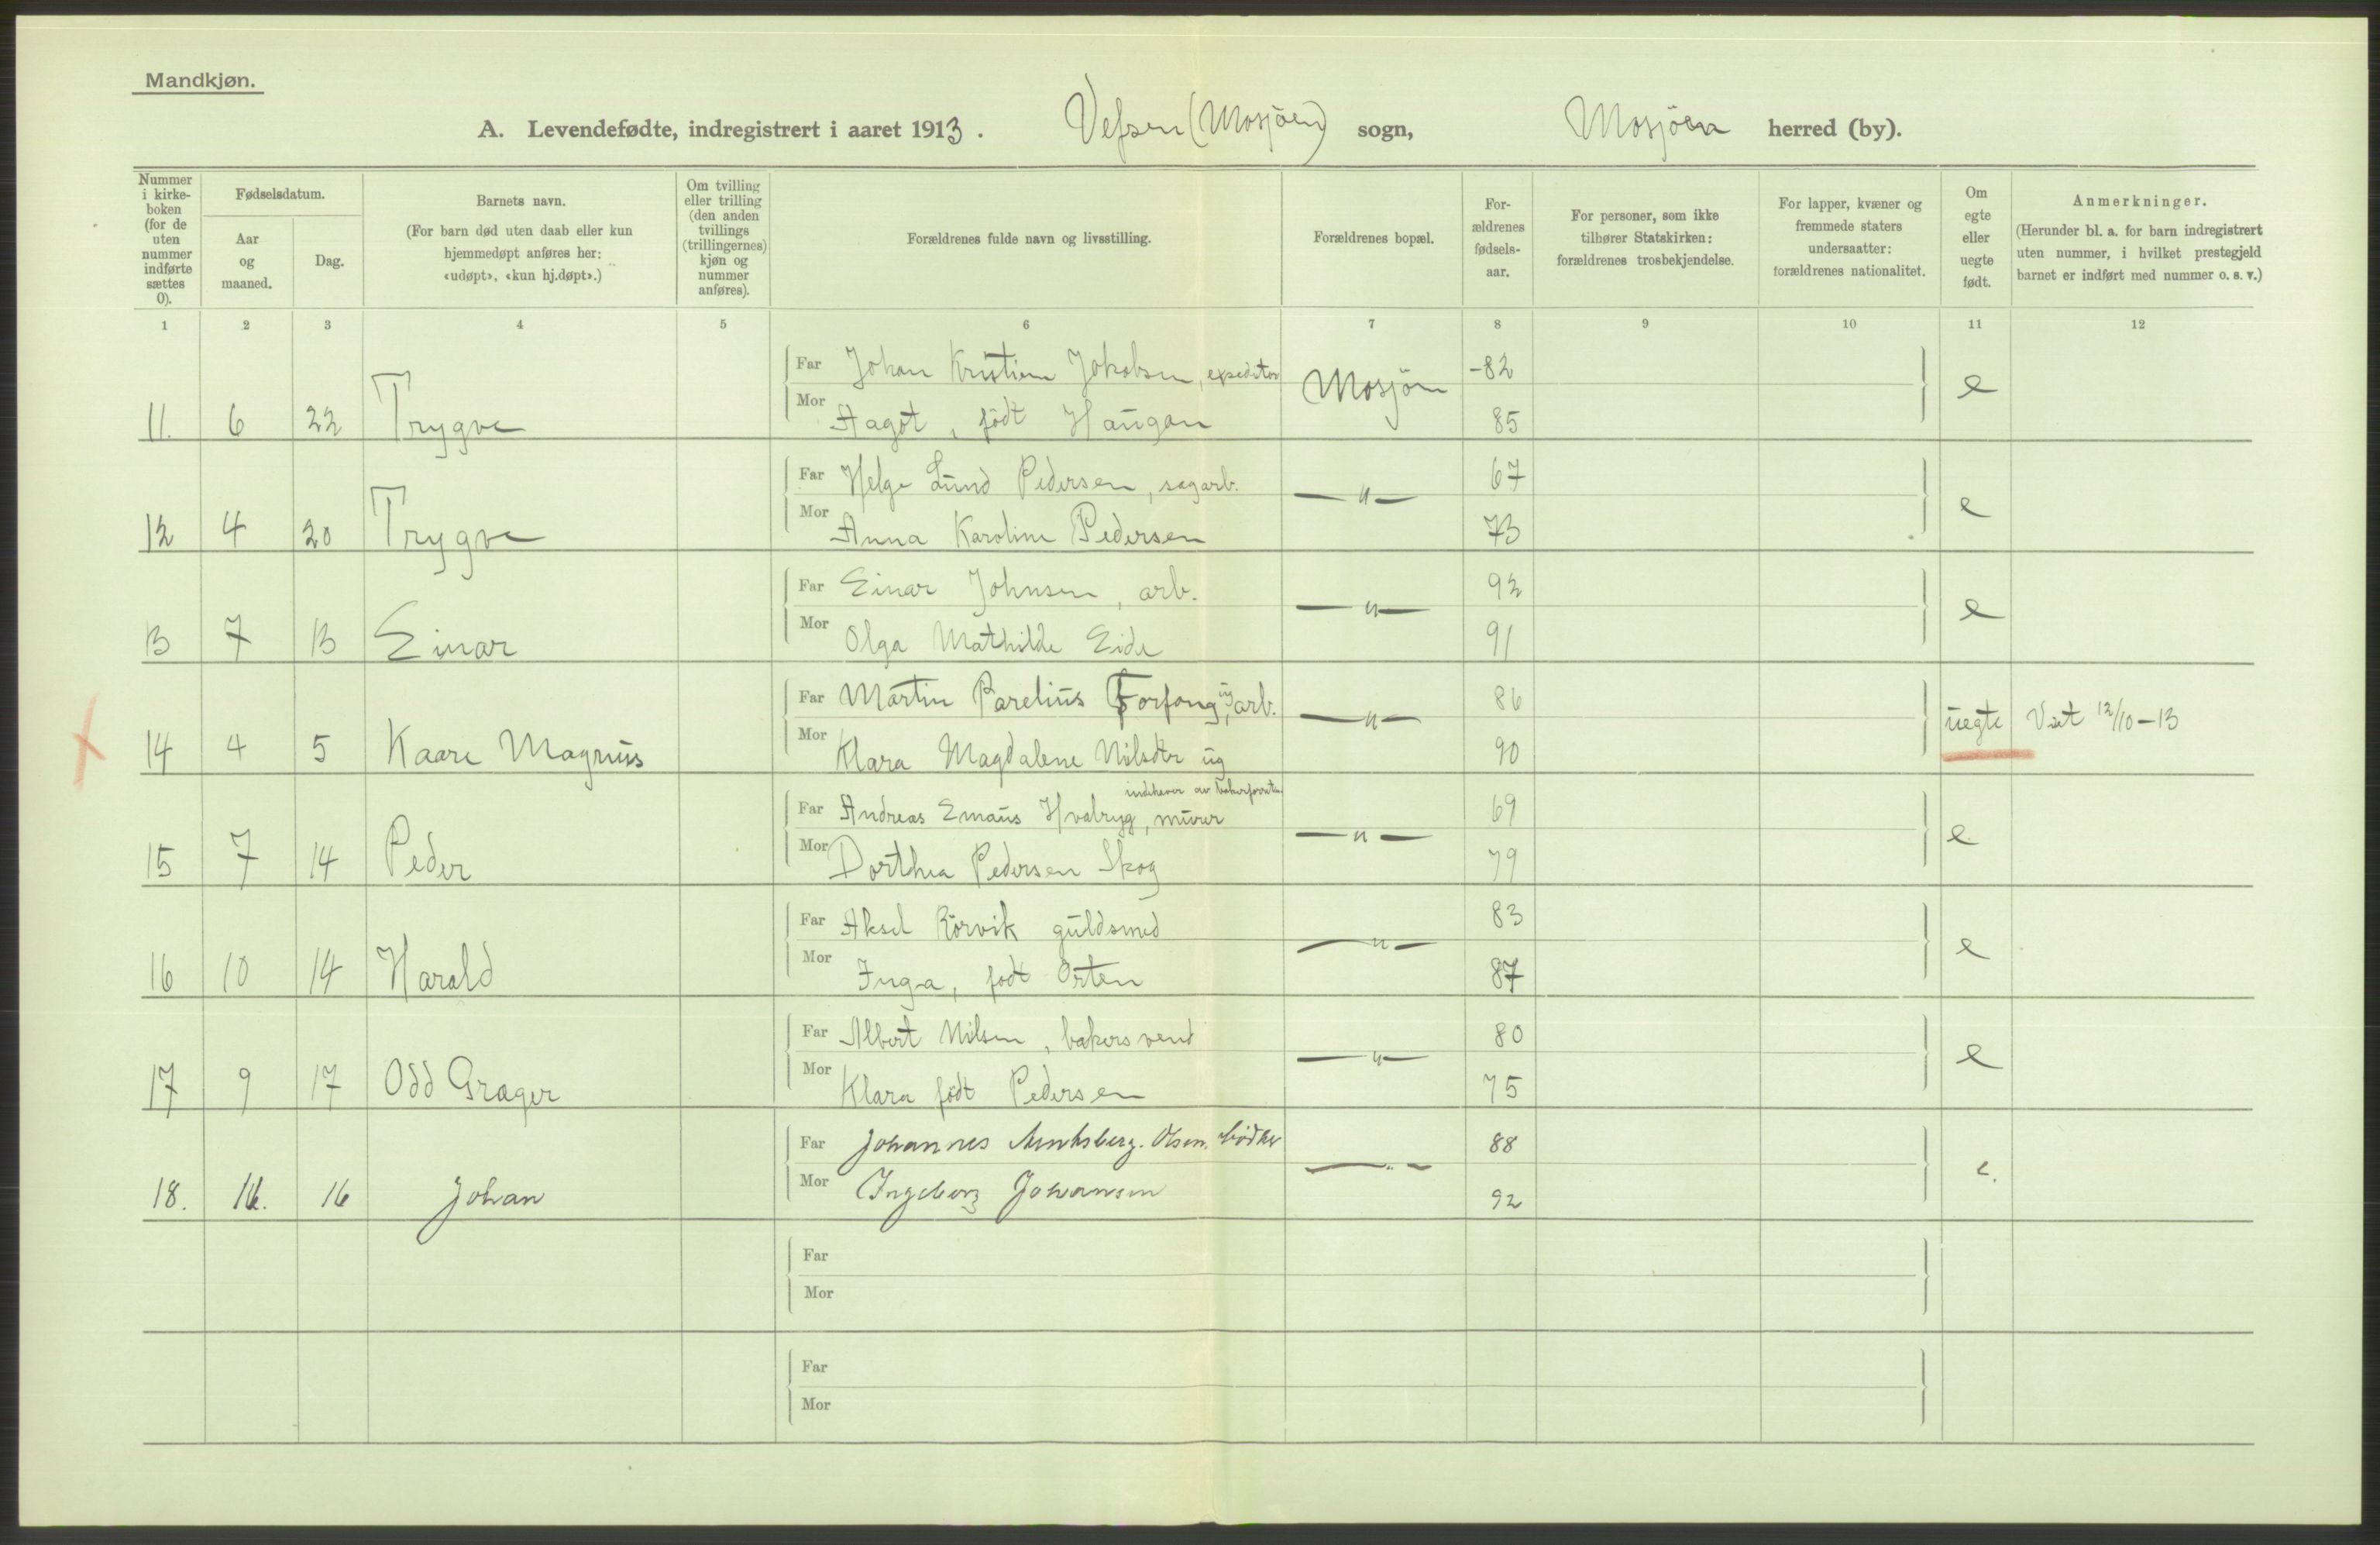 Mandkjøn.
A. Levendefødte, indregistrert i aaret 1913. Vefsen (Mosjöen) sogn, Mosjöen herred (by).
Nummer i kirke-boken (for de uten nummer indførte sættes 0).
Fødselsdatum.
Aar og maaned.
Dag.
Barnets navn.
(For barn død uten daab eller kun hjemmedøpt anføres her: «udøpt», «kun hj.døpt».)
Om tvilling eller trilling (den anden tvillings (trillingernes) kjøn og nummer anføres).
Forældrenes fulde navn og livsstilling.
Forældrenes bopæl.
For-ældrenes fødsels-aar.
For personer, som ikke tilhører Statskirken: forældrenes trosbekjendelse.
For lapper, kvæner og fremmede staters undersaatter: forældrenes nationalitet.
Om egte eller uegte født.
Anmerkninger.
(Herunder bl. a. for barn indregistrert uten nummer, i hvilket prestegjeld barnet er indført med nummer o. s. v.)
1 2 3 4 5 6 7 8 9 10 11 12
Far Johan Kristian Jakobsen, expeditør Mosjöen -82 e
11. 6 22 Trygve Mor Aagot, födt Haugan 85
Far Helge Lund Pedersen, sagarb. —"— 67 e
12 4 20 Trygve Mor Anna Karoline Pedersen 73
Far Einar Johnsen, arb. —"— 92 e
13 7 13 Einar Mor Olga Mathilde Eide 91
Far Martin Parelius Forfang, ug arb. —"— 86 uegte Vat 12/10-13
14 4 5 Kaare Magnus Mor Klara Magdalene Nilsdtr ug 90
indehaver av
Far Andreas Emaus Hvalryg, murer —"— 69 e
15 7 14 Peder Mor Dorthea Pedersen Skog 79
Far Aksel Rörvik guldsmed —"— 83 e
16 10 14 Harald Mor Inga, födt Orten 87
Far Albert Nilsen, bakersvend —"— 80 e
17 9 17 Odd Græger Mor Klara födt Pedersen 75
Far Johannes Olsen. bødker —"— 88 e.
18. 16 Johan Mor Ingeborg Johansen 92
Far
Mor
Far
Mor